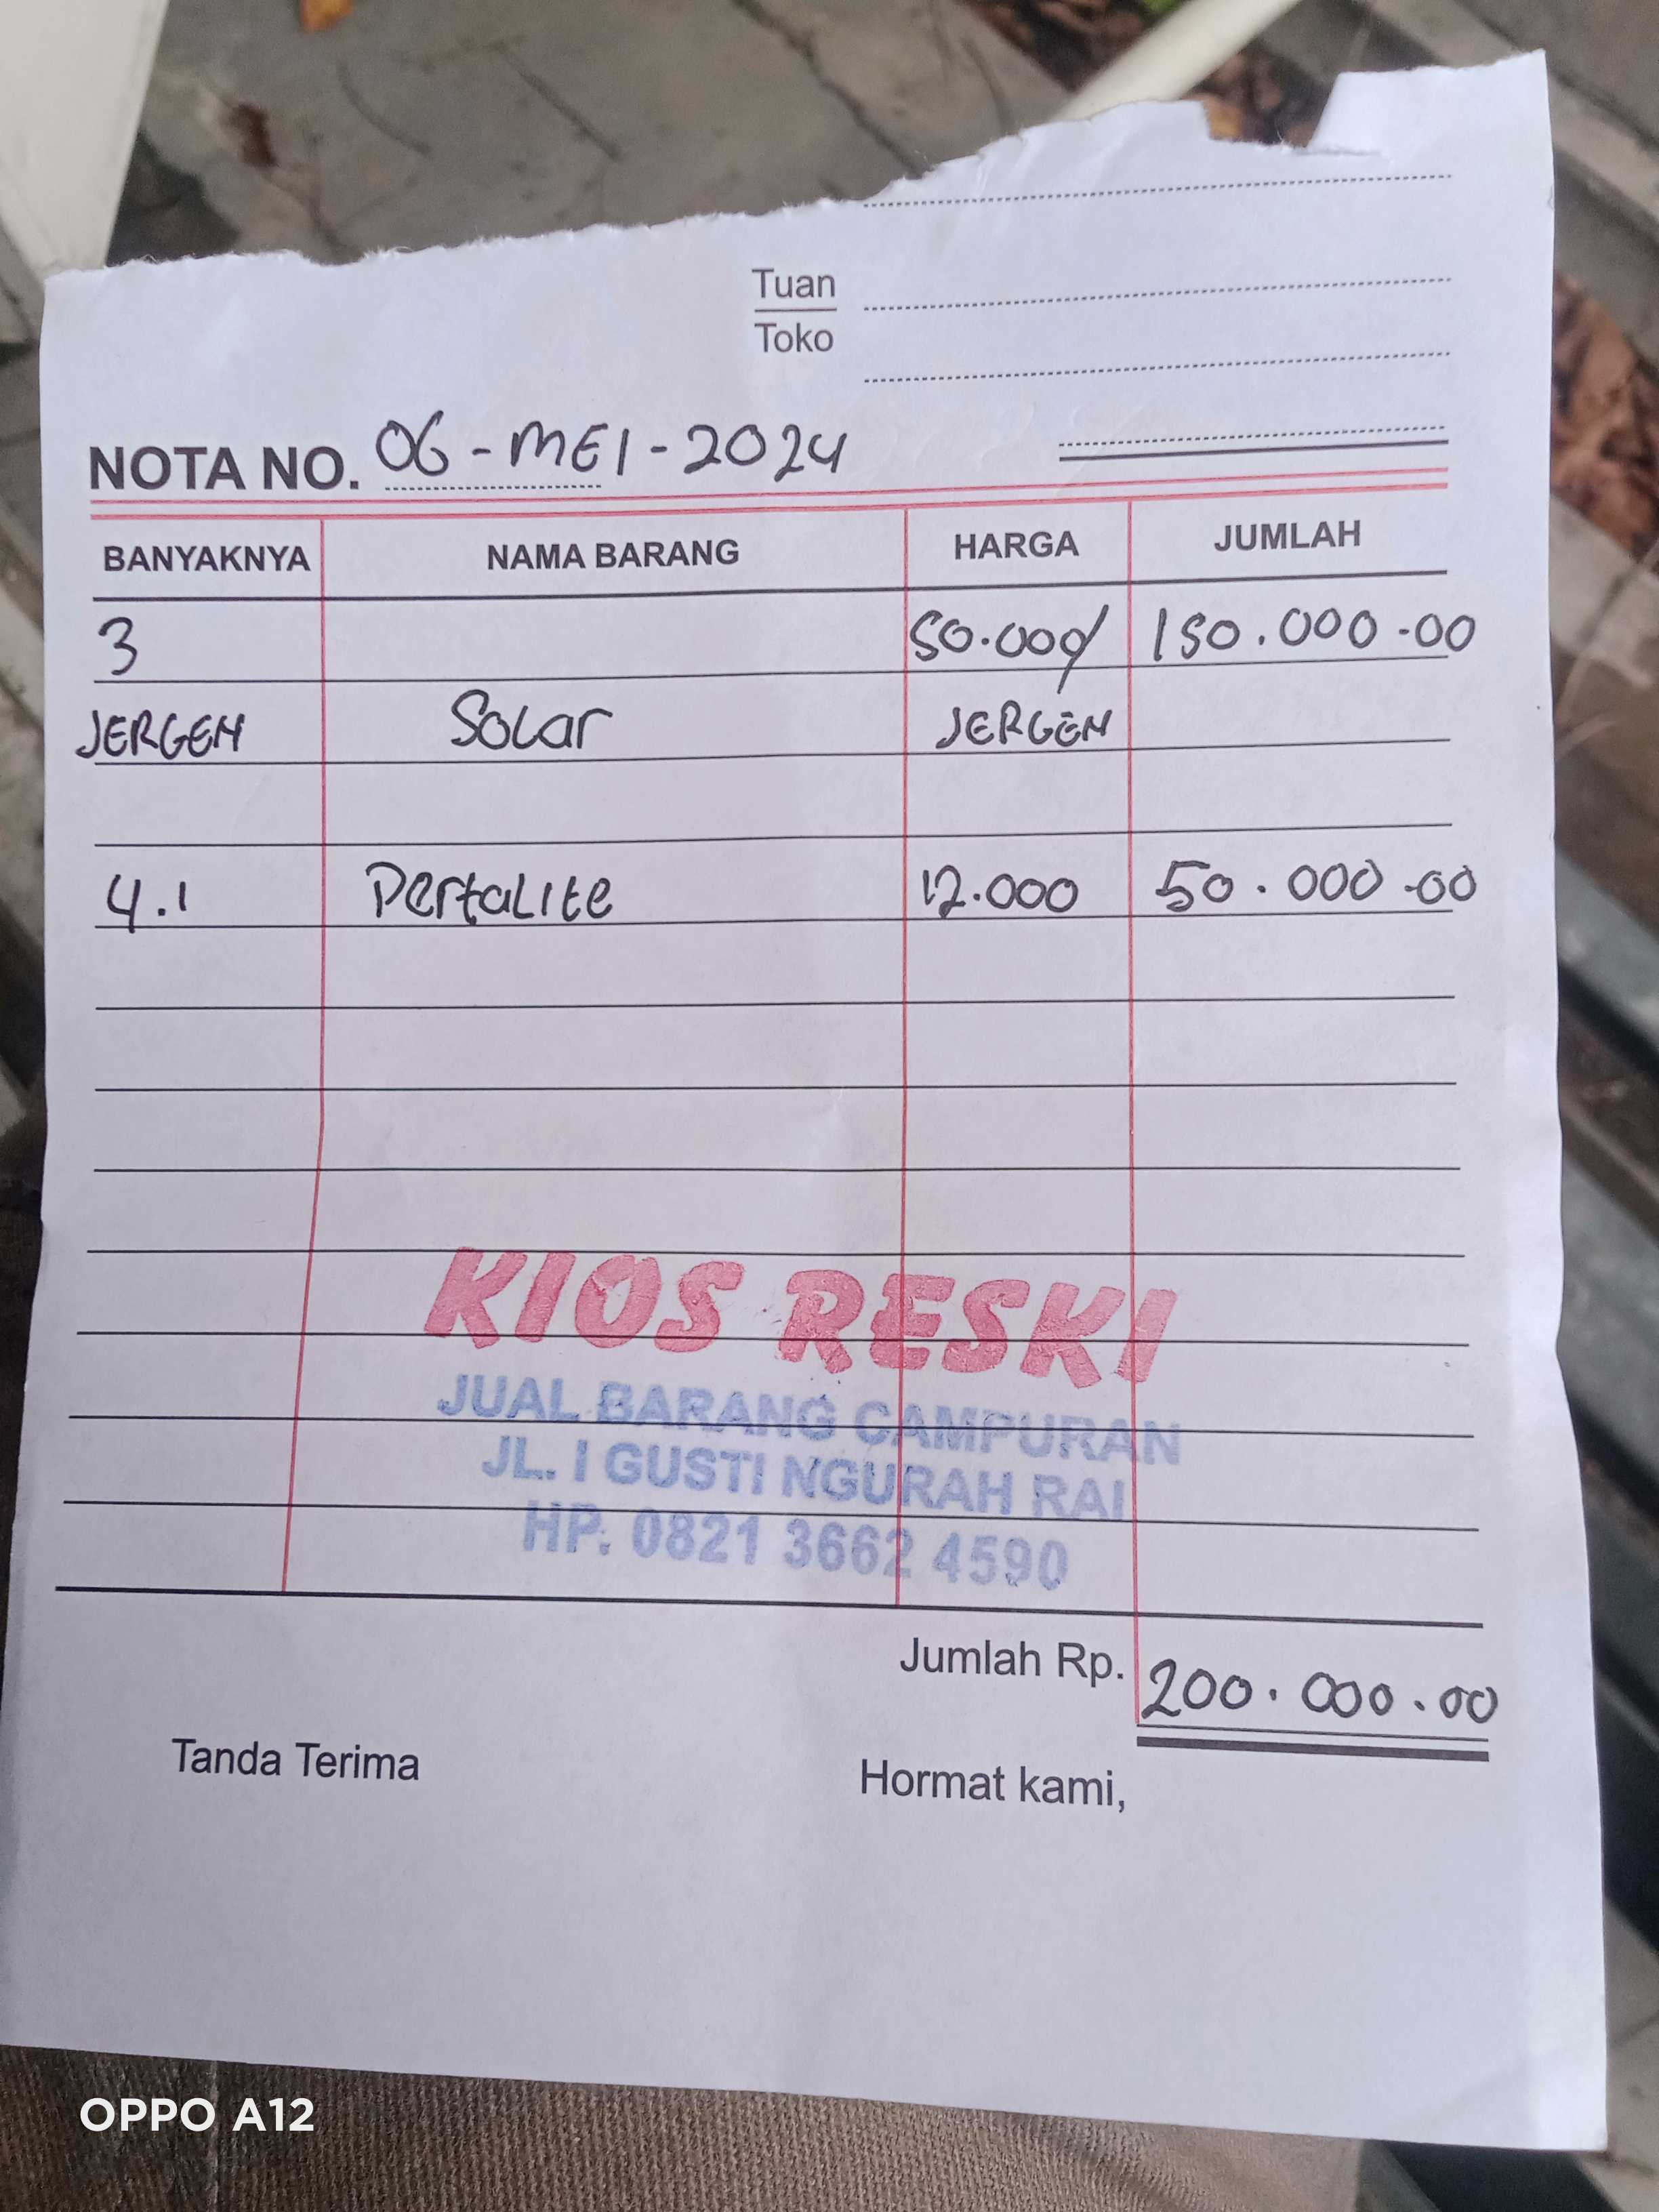 Tuan
Toko
NOTA NO. 06-MEI-2024
BANYAKNYA NAMA BARANG HARGA JUMLAH
3 50.000/ 150.000.00
JERGEN Solar JERGEN
4.1 PertaLite 12.000 50.000.00
KIOS RESKI
JUAL BARANG CAMPURAN
JL. I GUSTI NGURAH RAI
HP. 0821 3662 4590
Jumlah Rp. 200.000.00
Tanda Terima Hormat kami,
OPPO A12